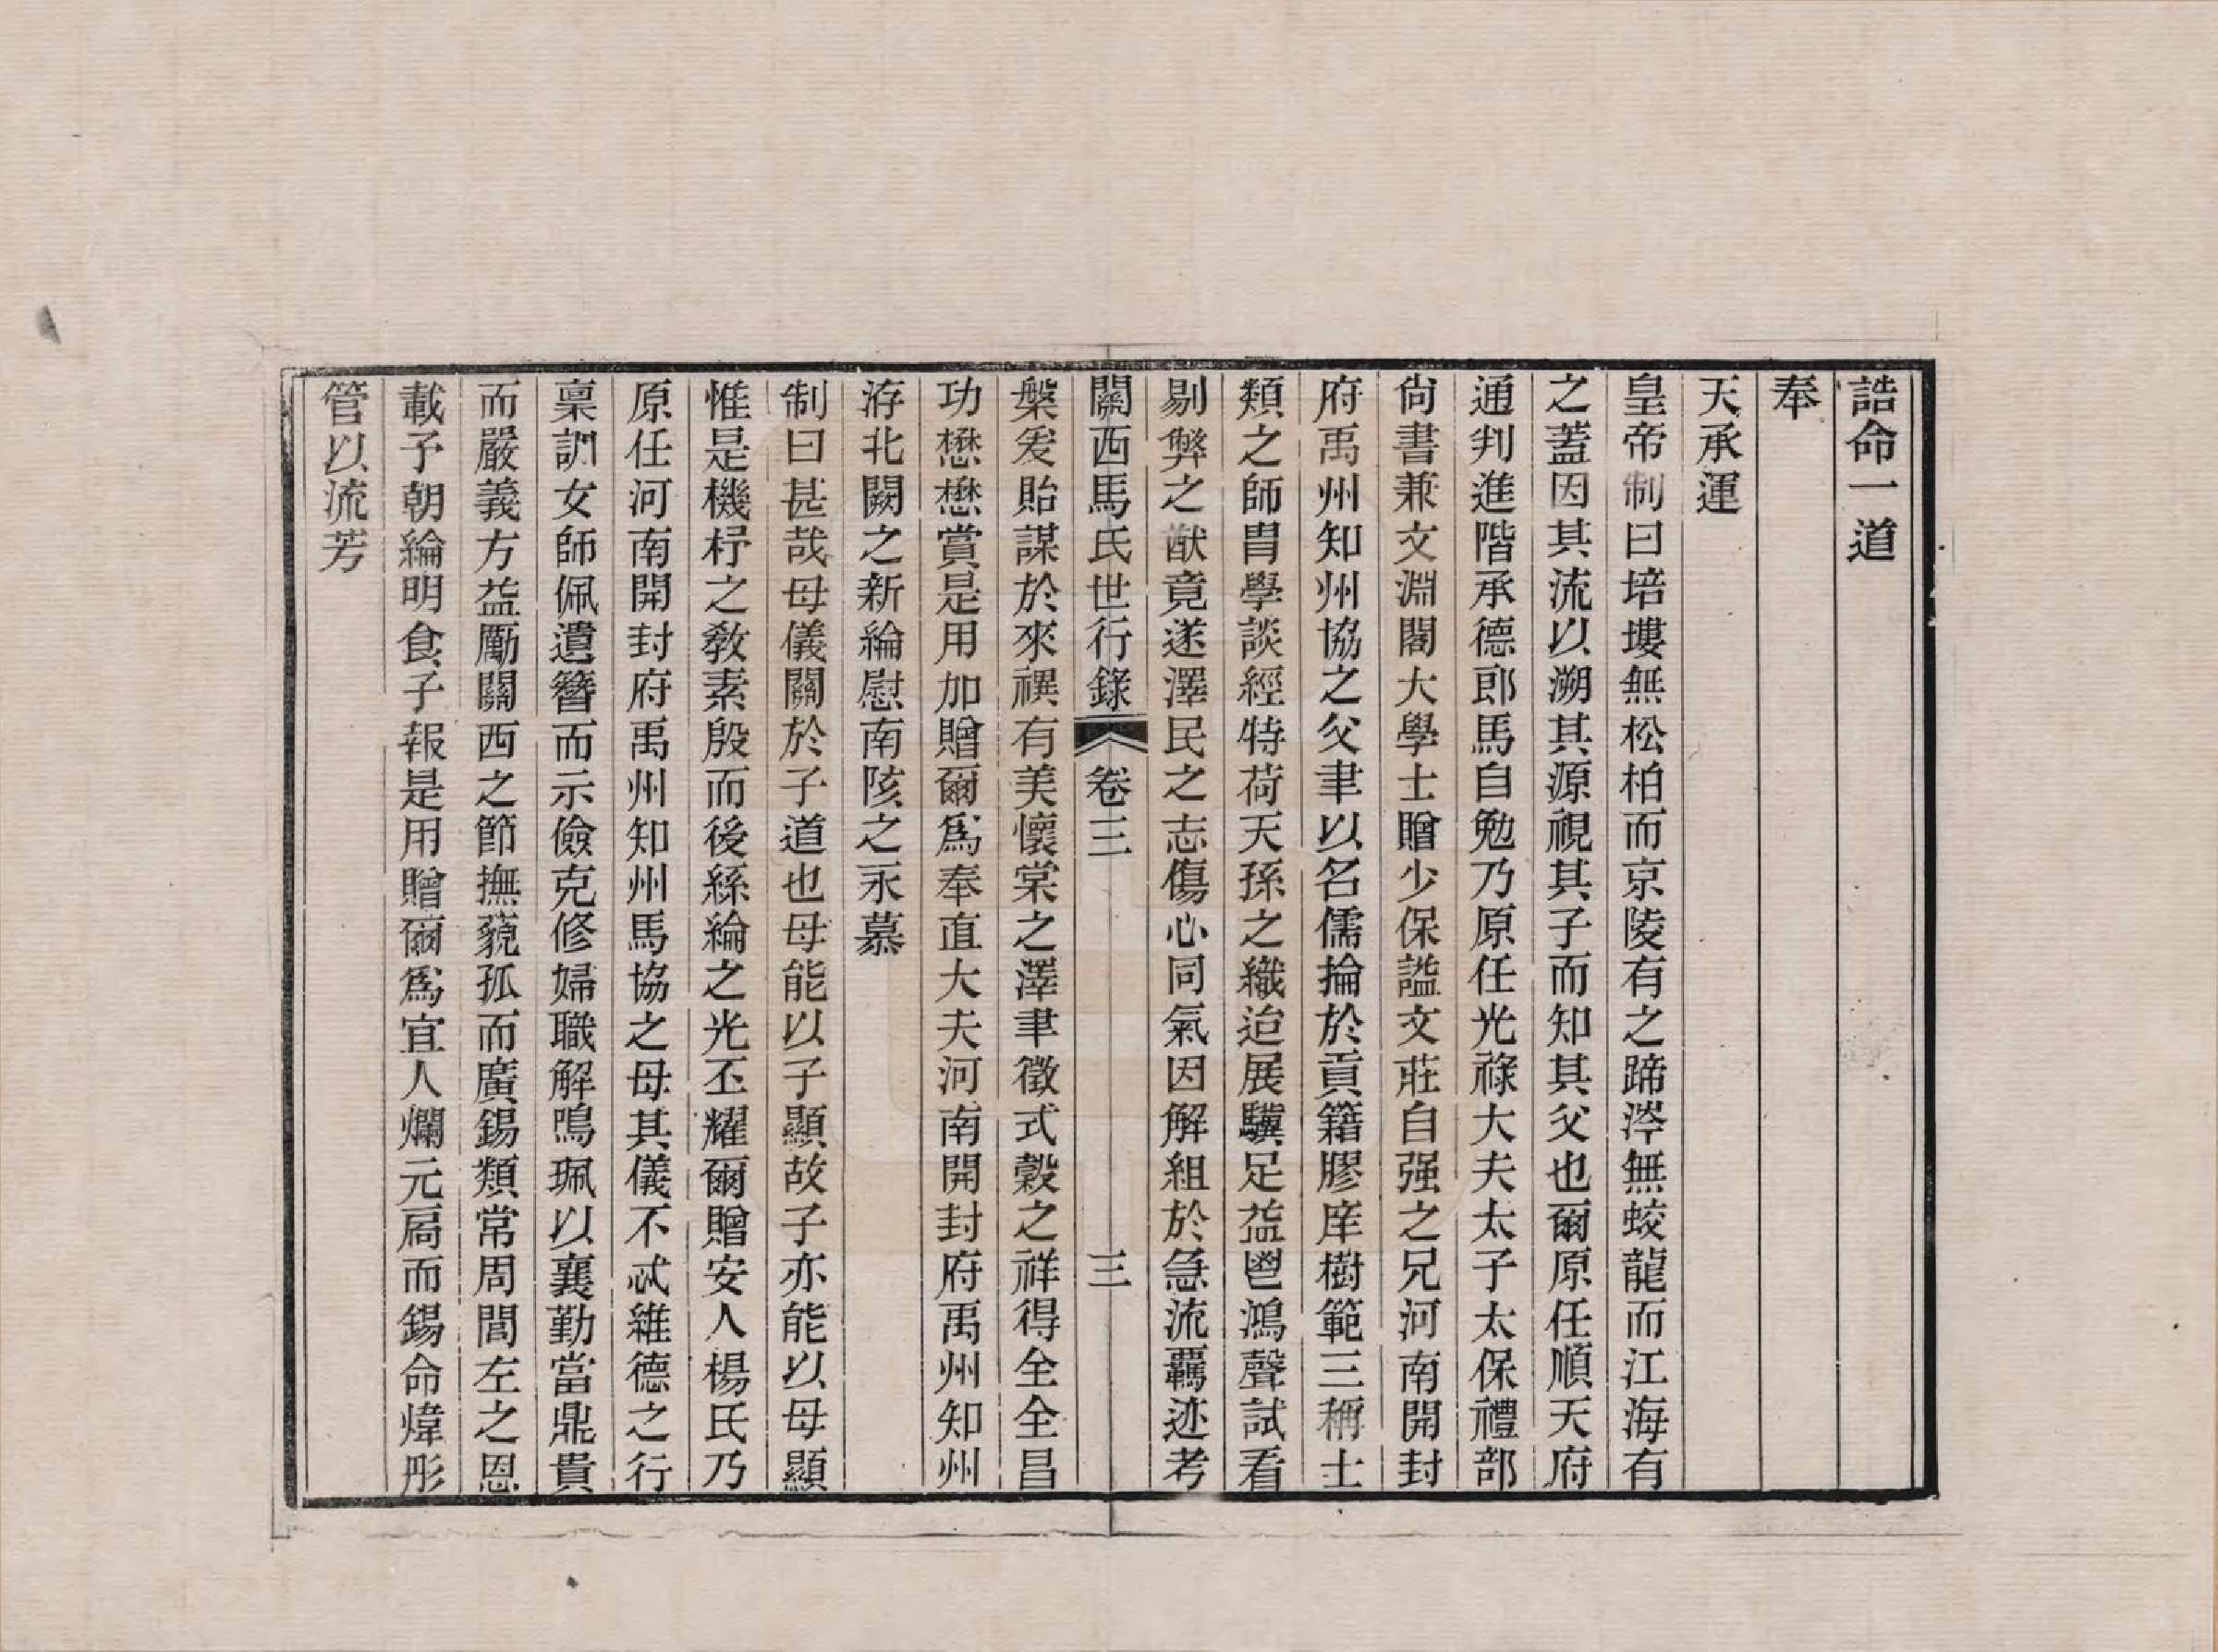 誥命一道
奉
天承運
皇帝制曰培塿無松柏而京陵有之蹄涔無蛟龍而江海有
之蓋因其流以溯其源視其子而知其父也爾原任順天府
通判進階承德郎馬自勉乃原任光祿大夫太子太保禮部
尙書兼文淵閣大學士贈少保謚文莊自强之兄河南開封
府禹州知州協之父聿以名儒掄於貢籍膠庠樹範三稱士
類之師冑學談經特荷天孫之織迨展驥足益鬯鴻聲試看
剔弊之猷竟遂澤民之志傷心同氣因解組於急流覊迹考
關西馬氏世行錄 卷三 三
槃爰貽謀於來禩有美懷棠之澤聿徵式穀之祥得全全昌
功懋懋賞是用加贈爾爲奉直大夫河南開封府禹州知州
洊北闕之新綸慰南陔之永慕
制曰甚哉母儀關於子道也母能以子顯故子亦能以母顯
惟是機杼之敎素殷而後絲綸之光丕耀爾贈安人楊氏乃
原任河南開封府禹州知州馬協之母其儀不忒維德之行
稟訓女師佩遺簪而示儉克修婦職解鳴珮以襄勤當鼎貴
而嚴義方益勵關西之節撫藐孤而廣錫類常周閭左之恩
載子朝綸明食子報是用贈爾爲宜人爛元扃而錫命煒彤
管以流芳